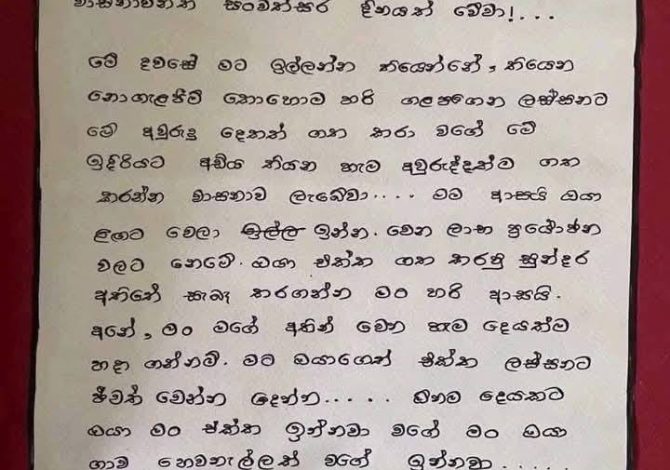 වාසනාවන්ත සංවත්සර දිනයක් වේවා!...
මේ දවසේ මට ඉල්ලන්න තියෙන්නේ, තියෙන
නොගැළපීම් කොහොම හරි ගලපගෙන ලස්සනට
මේ අවුරුදු දෙකක් ගත කරා වගේ මේ
ඉදිරියට අඩිය තියන හැම අවුරුද්දක්ම ගත
කරන්න වාසනාව ලැබේවා.... මම ආසයි ඔයා
ළඟට වෙලා ඉල්ල ඉන්න. වෙන ලාභ ප්‍රයෝජන
වලට නෙමේ. ඔයා එක්ක ගත කරපු සුන්දර
අතීතේ සැබෑ කරගන්න මං හරි ආසයි.
අනේ, මං මගේ අතින් වෙන හැම දෙයක්ම
හදා ගන්නම්. මට ඔයාගෙත් එක්ක ලස්සනට
ජීවත් වෙන්න දෙන්න..... ඕනම දෙයකට
ඔයා මං එක්ක ඉන්නවා වගේ මං ඔයා
ගාව හෙවනැල්ලක් වගේ ඉන්නවා.....